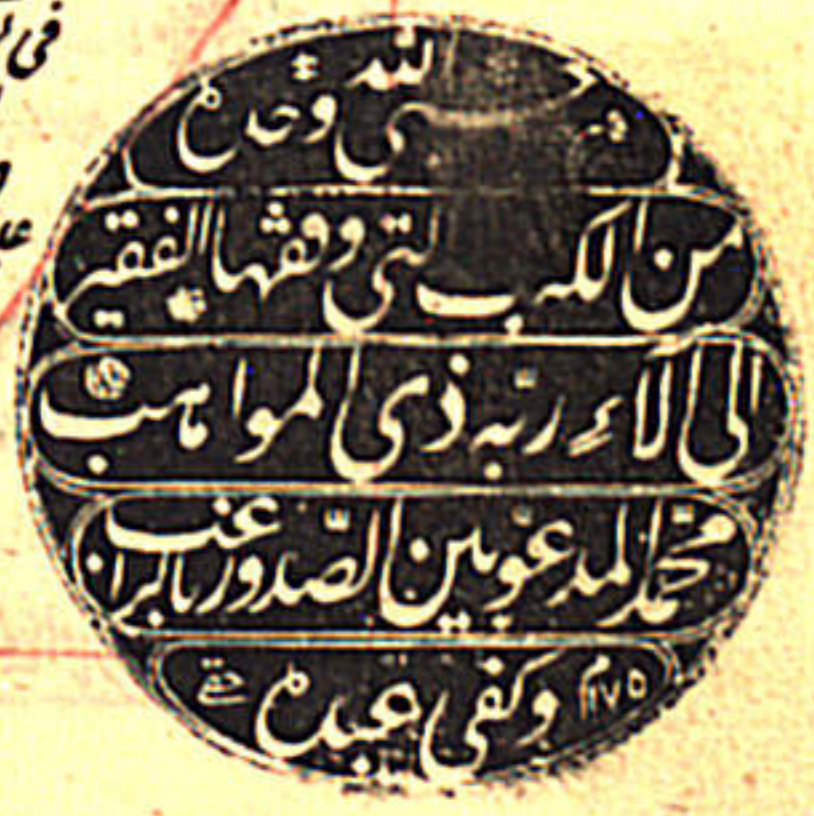 حسبي الله وحده
من الكتب التي وقفها الفقير
الى آلاء ربه ذي المواهب
محمد المدعو بين الصدور بالراغب
وكفى عبده
في